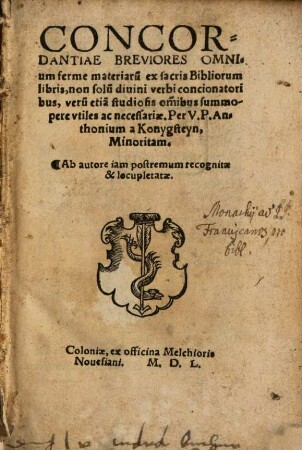 CONCOR-
DANTIAE BREVIORES OMNI-
um ferme materiarũ ex sacris Bibliorum
libris, non solũ diuini verbi concionatori
bus, verũ etiã studiosis oĩbus summo-
pere vtiles ac necessariæ. Per V. P. An-
thonium a Konygsteyn,
Minoritam.
¶Ab autore iam postremum recognitæ
& locupletatæ.
Monachij ad PP.
Franciscanos pro
Bibl.
Coloniæ, ex officina Melchioris
Nouesiani. M. D. L.